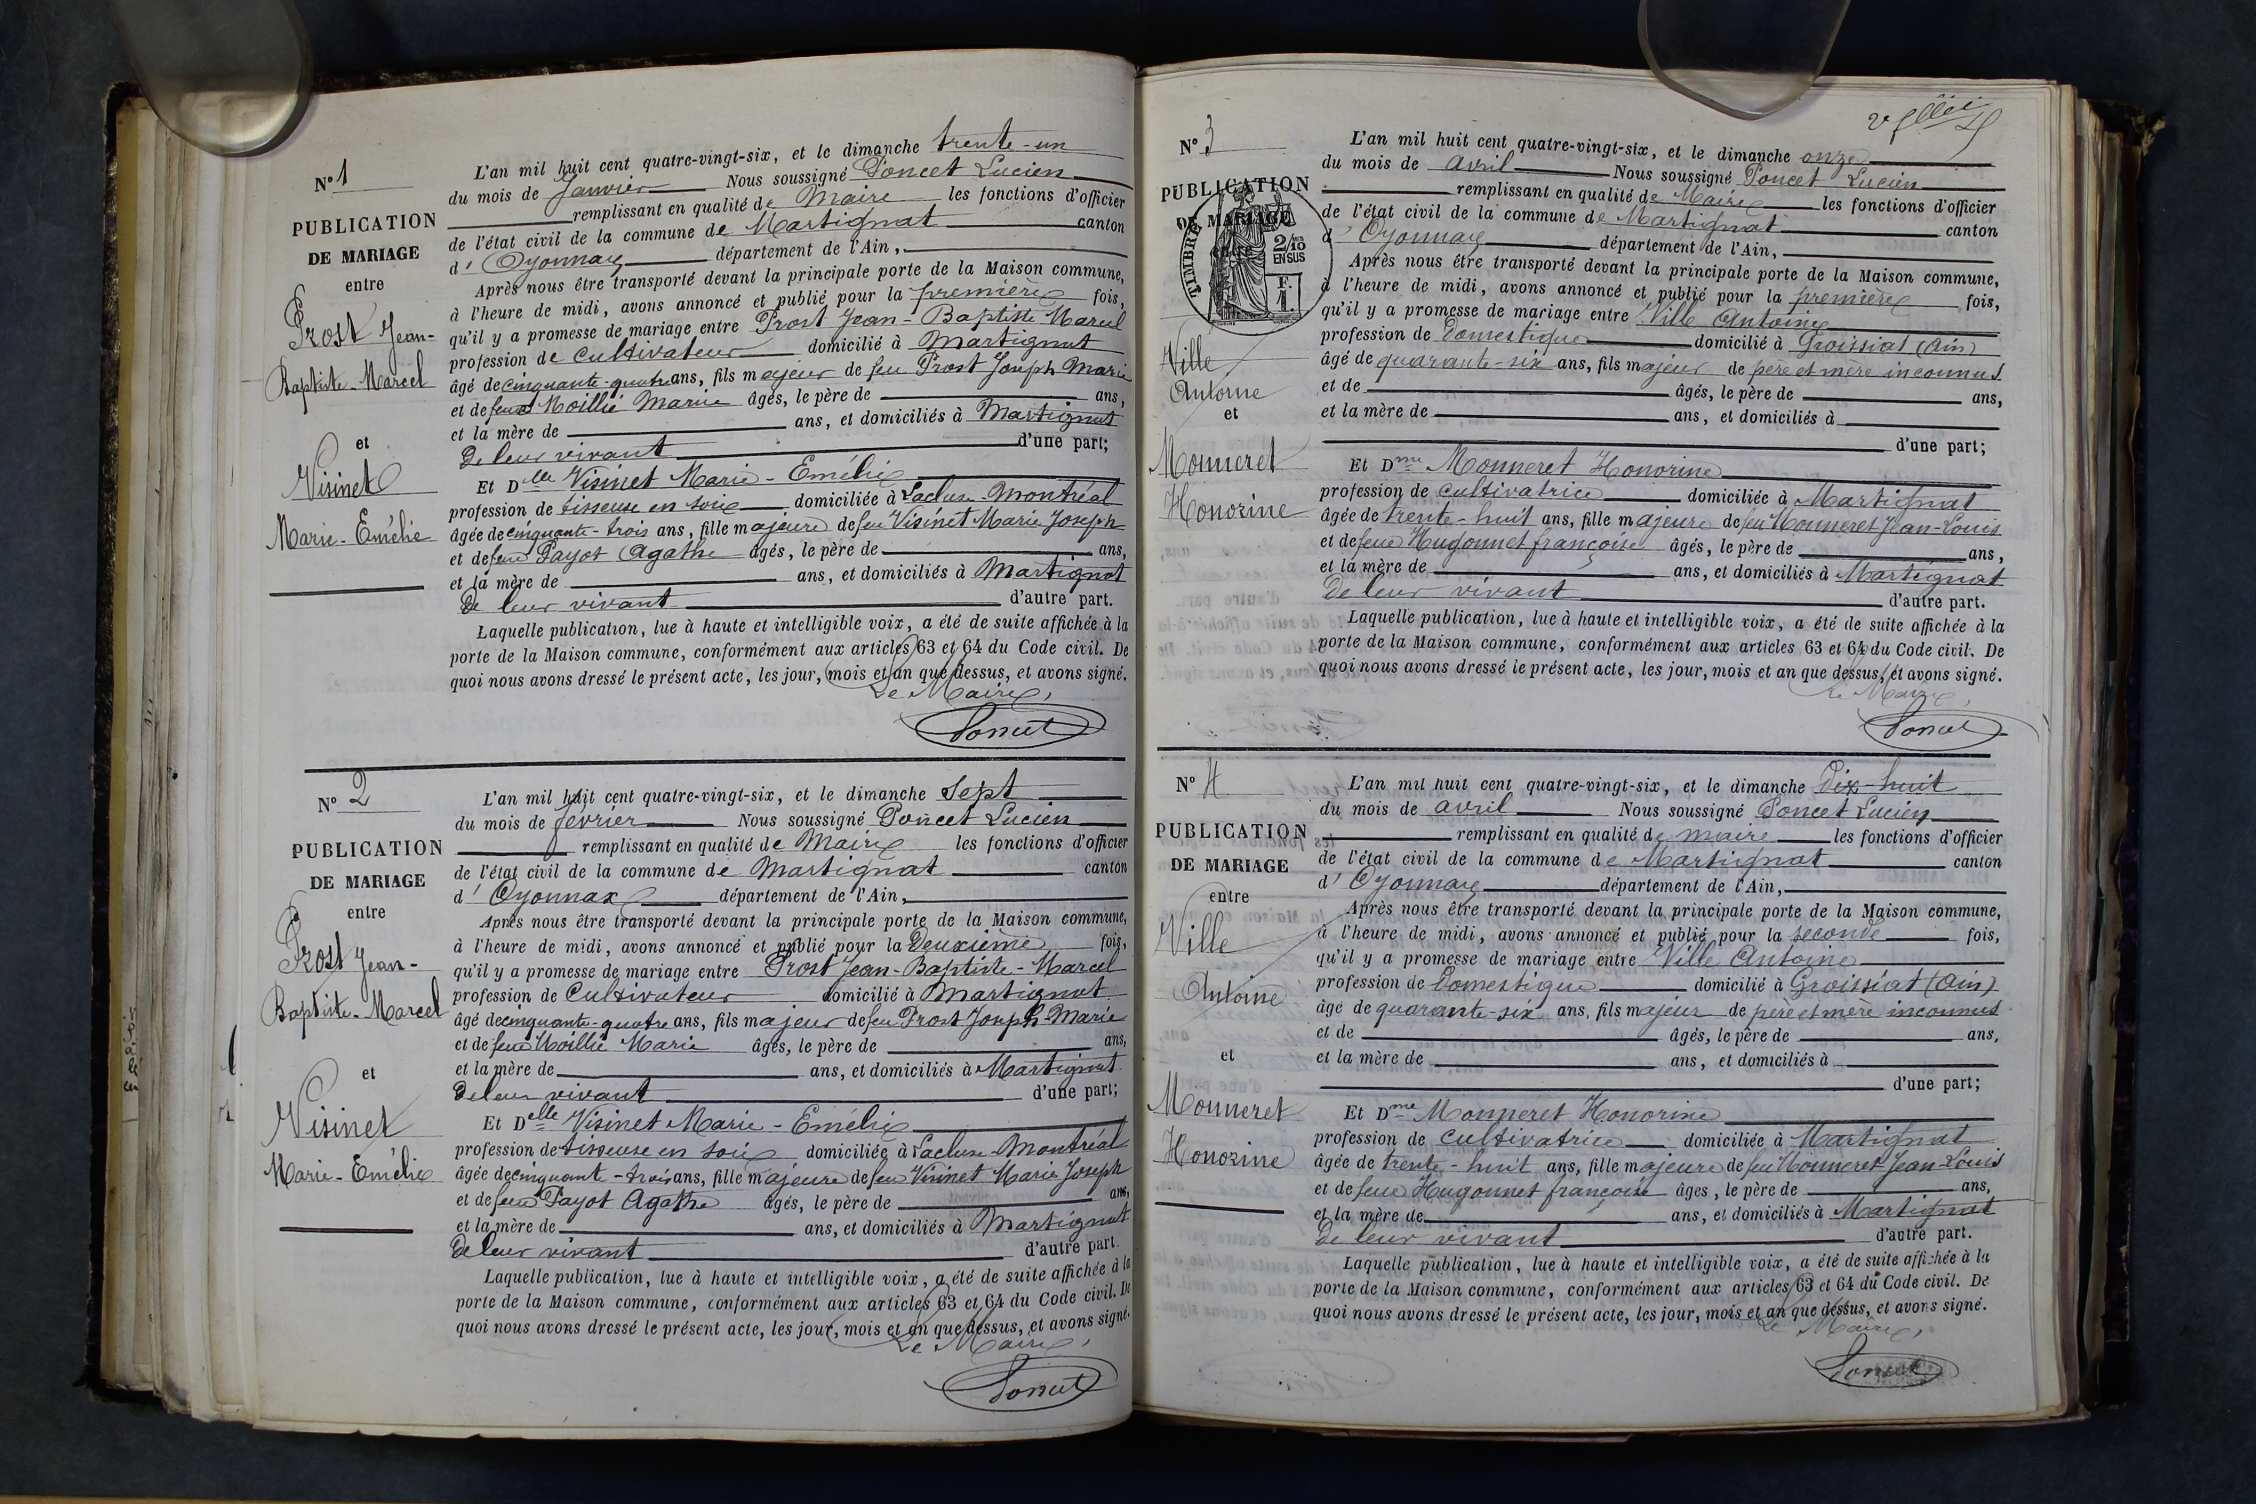 N° 1
PUBLICATION
DE MARIAGE
entre
Prost Jean-
Baptiste-Marcel
et
Visinet
Marie-Emélie
L'an mil huit cent quatre-vingt-six, et le dimanche trente-un
du mois de Janvier Nous soussigné Poncet Lucien
remplissant en qualité de Maire les fonctions d'officier
de l'état civil de la commune de Martignat canton
d' Oyonnax département de l'Ain,
Après nous être transporté devant la principale porte de la Maison commune,
à l'heure de midi, avons annoncé et publié pour la première fois,
qu'il y a promesse de mariage entre Prost Jean-Baptiste Marcel
profession de Cultivateur domicilié à Martignat
âgé de cinquante-quatre ans, fils majeur de feu Prost Joseph Marie
et de feue Moillié Marie âgés, le père de ans,
et la mère de ans, et domiciliés à Martignat
De leur vivant d'une part;
Et Dlle Visinet Marie-Emélie
profession de tisseuse en soie domiciliée à Lacluse-Montréal
âgée de cinquante-trois ans, fille majeure de feu Visinet Marie Joseph
et de feue Payot Agathe âgés, le père de ans,
et la mère de ans, et domiciliés à Martignat
De leur vivant d'autre part.
Laquelle publication, lue à haute et intelligible voix, a été de suite affichée à la
porte de la Maison commune, conformément aux articles 63 et 64 du Code civil. De
quoi nous avons dressé le présent acte, les jour, mois et an que dessus, et avons signé.
Le Maire,
Poncet
N° 2
PUBLICATION
DE MARIAGE
entre
Prost Jean-
Baptiste-Marcel
et
Visinet
Marie-Emélie
L'an mil huit cent quatre-vingt-six, et le dimanche Sept
du mois de février Nous soussigné Poncet Lucien
remplissant en qualité de Maire les fonctions d'officier
de l'état civil de la commune de Martignat canton
d' Oyonnax département de l'Ain,
Après nous être transporté devant la principale porte de la Maison commune,
à l'heure de midi, avons annoncé et publié pour la Deuxième fois,
qu'il y a promesse de mariage entre Prost Jean-Baptiste-Marcel
profession de Cultivateur domicilié à Martignat
âgé de cinquante-quatre ans, fils majeur de feu Prost Joseph-Marie
et de feue Moillié Marie âgés, le père de ans,
et la mère de ans, et domiciliés à Martignat
De leur vivant d'une part;
Et Delle Visinet Marie-Emélie
profession de tisseuse en soie domiciliée à Lacluse-Montréal
âgée de cinquante-trois ans, fille majeure de feu Visinet Marie Joseph
et de feue Payot Agathe âgés, le père de ans,
et la mère de ans, et domiciliés à Martignat
De leur vivant d'autre part.
Laquelle publication, lue à haute et intelligible voix, a été de suite affichée à la
porte de la Maison commune, conformément aux articles 63 et 64 du Code civil. De
quoi nous avons dressé le présent acte, les jour, mois et an que dessus, et avons signé.
Le Maire,
Poncet
N° 3
PUBLICATION
DE MARIAGE
entre
TIMBRE
2/10
EN SUS
F.
1.
Ville
Antoine
et
Monneret
Honorine
L'an mil huit cent quatre-vingt-six, et le dimanche onze
du mois de avril Nous soussigné Poncet Lucien
remplissant en qualité de Maire les fonctions d'officier
de l'état civil de la commune de Martignat canton
d' Oyonnax département de l'Ain,
Après nous être transporté devant la principale porte de la Maison commune,
à l'heure de midi, avons annoncé et publié pour la première fois,
qu'il y a promesse de mariage entre Ville Antoine
profession de Domestique domicilié à Groissiat (Ain)
âgé de quarante-six ans, fils majeur de père et mère inconnus
et de âgés, le père de ans,
et la mère de ans, et domiciliés à
d'une part;
Et Dme Monneret Honorine
profession de cultivatrice domiciliée à Martignat
âgée de trente-huit ans, fille majeure de feu Monneret Jean-Louis
et de feue Hugonnet françoise âgés, le père de ans,
et la mère de ans, et domiciliés à Martignat
De leur vivant d'autre part.
Laquelle publication, lue à haute et intelligible voix, a été de suite affichée à la
porte de la Maison commune, conformément aux articles 63 et 64 du Code civil. De
quoi nous avons dressé le présent acte, les jour, mois et an que dessus, et avons signé.
Le Maire,
Poncet
N° 4
PUBLICATION
DE MARIAGE
entre
Ville
Antoine
et
Monneret
Honorine
L'an mil huit cent quatre-vingt-six, et le dimanche Dix-huit
du mois de avril Nous soussigné Poncet Lucien
remplissant en qualité de maire les fonctions d'officier
de l'état civil de la commune de Martignat canton
d' Oyonnax département de l'Ain,
Après nous être transporté devant la principale porte de la Maison commune,
à l'heure de midi, avons annoncé et publié pour la seconde fois,
qu'il y a promesse de mariage entre Ville Antoine
profession de Domestique domicilié à Groissiat (Ain)
âgé de quarante-six ans, fils majeur de père et mère inconnus
et de âgés, le père de ans,
et la mère de ans, et domiciliés à
d'une part;
Et Dme Monneret Honorine
profession de cultivatrice domiciliée à Martignat
âgée de trente-huit ans, fille majeure de feu Monneret Jean-Louis
et de feue Hugonnet françoise âgés, le père de ans,
et la mère de ans, et domiciliés à Martignat
De leur vivant d'autre part.
Laquelle publication, lue à haute et intelligible voix, a été de suite affichée à la
porte de la Maison commune, conformément aux articles 63 et 64 du Code civil. De
quoi nous avons dressé le présent acte, les jour, mois et an que dessus, et avons signé.
Le Maire,
Poncet